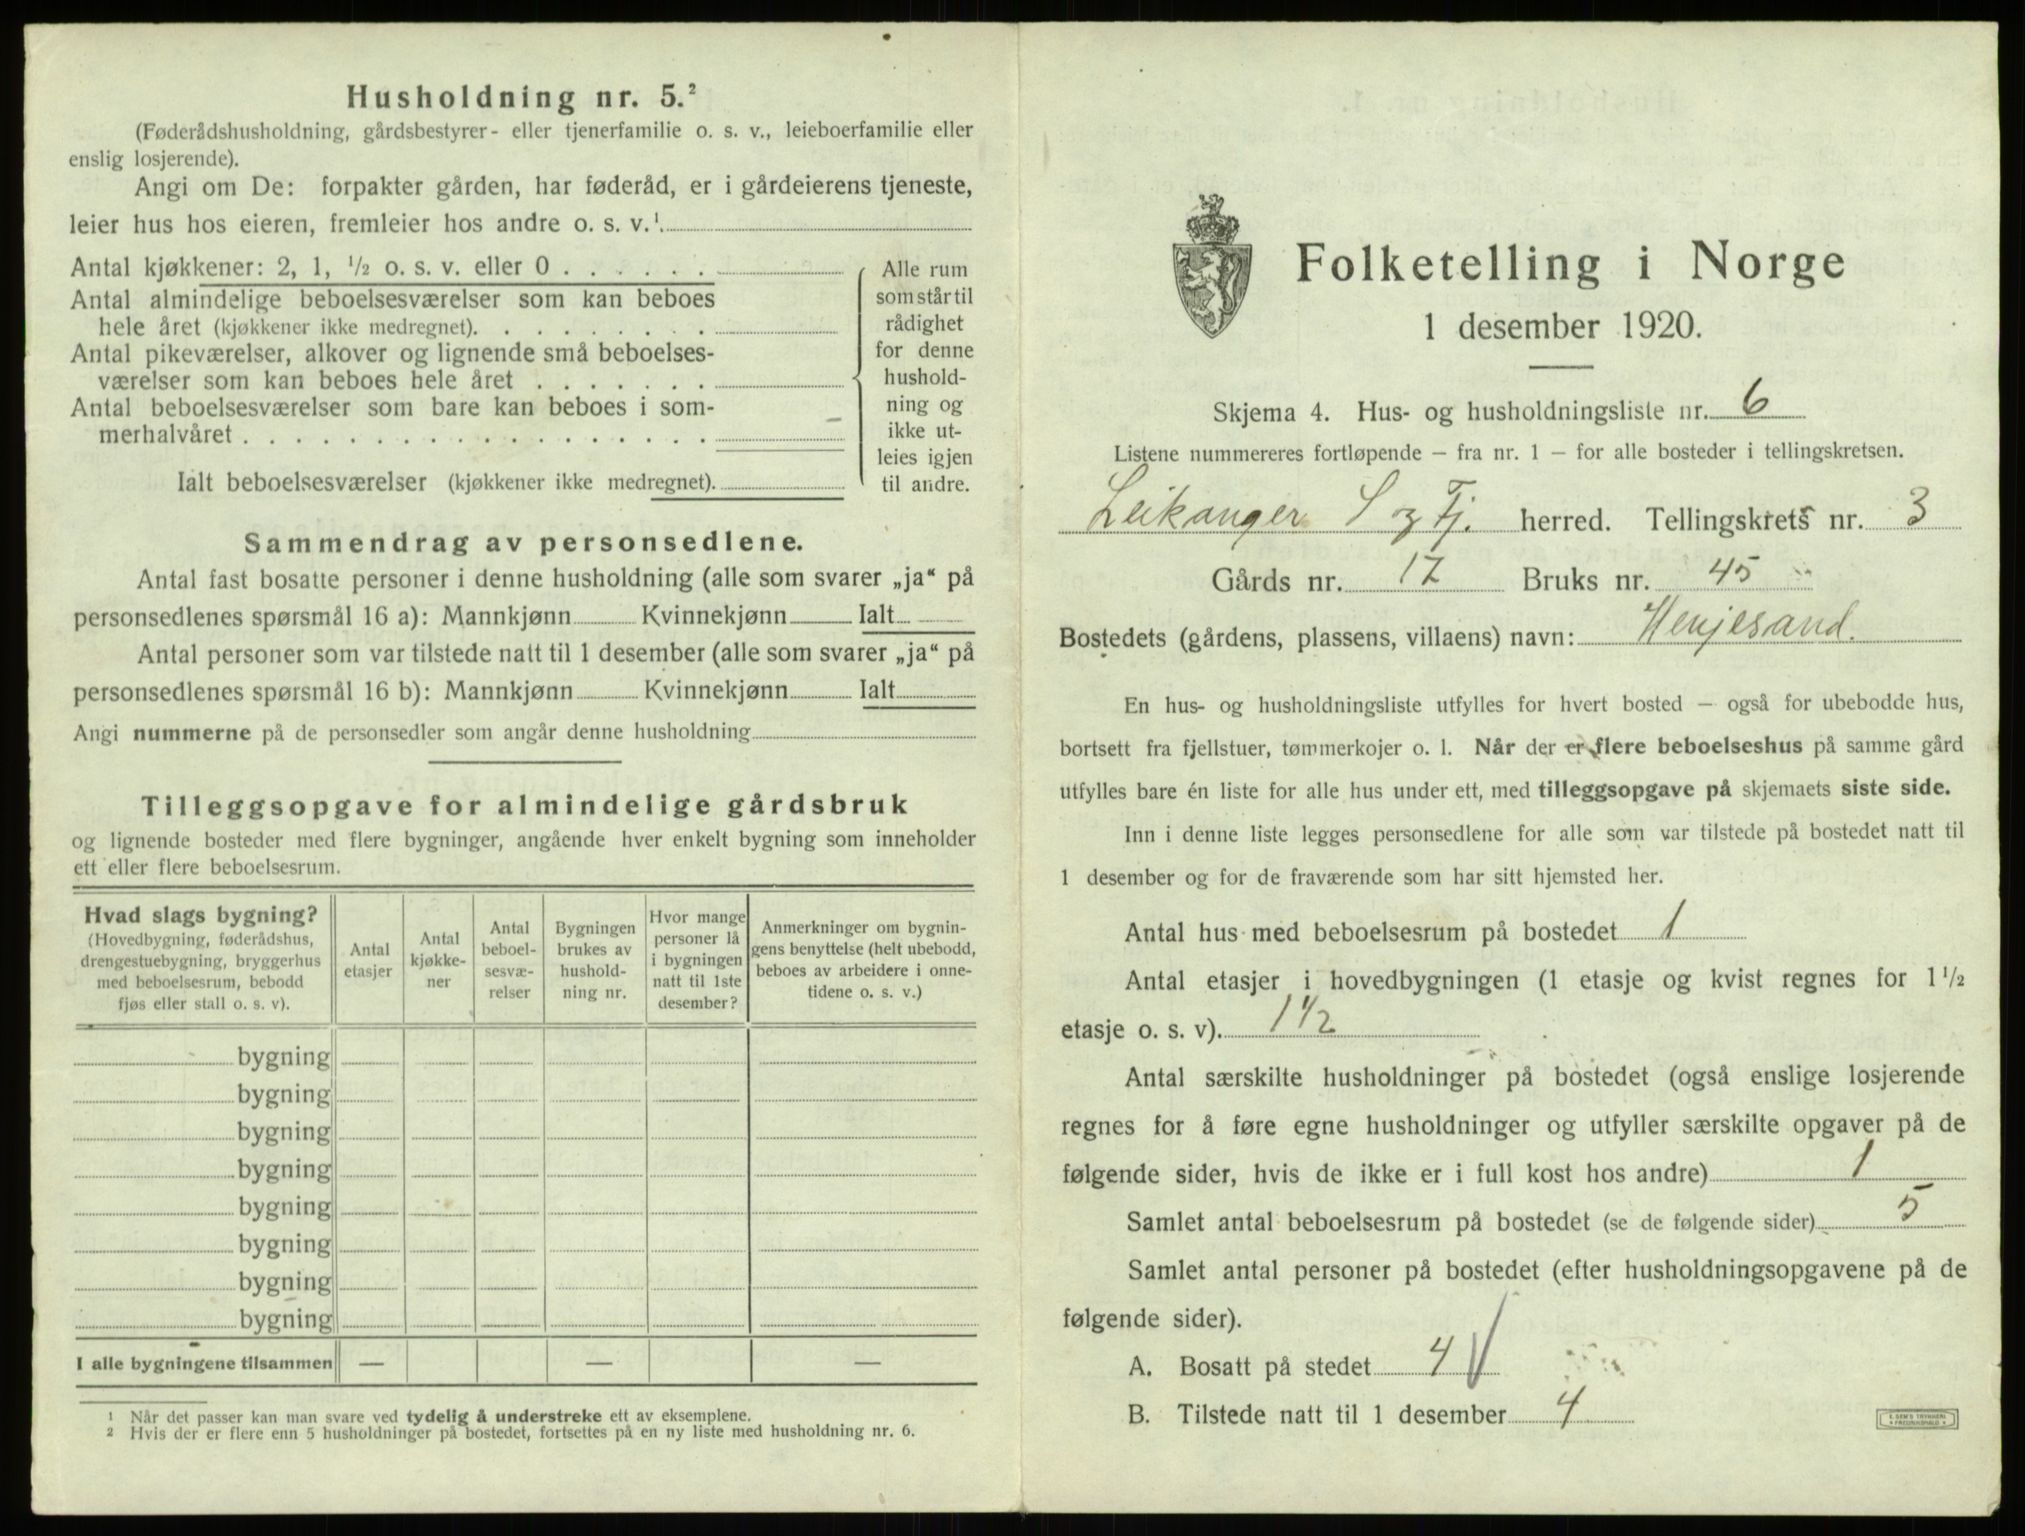 Husholdning nr. 5.²
(Føderådshusholdning, gårdsbestyrer- eller tjenerfamilie o. s. v., leieboerfamilie eller
enslig losjerende).
Angi om De: forpakter gården, har føderåd, er i gårdeierens tjeneste,
leier hus hos eieren, fremleier hos andre o. s. v.¹
Antal kjøkkener: 2, 1, ½ o. s. v. eller 0 . . . . . .
Antal almindelige beboelsesværelser som kan beboes
hele året (kjøkkener ikke medregnet). . . . . . . . .
Antal pikeværelser, alkover og lignende små beboelses-
værelser som kan beboes hele året . . . . . . .
Antal beboelsesværelser som bare kan beboes i som-
merhalvåret . . . . . . . . . . . . . . . . . .
Ialt beboelsesværelser (kjøkkener ikke medregnet).
Alle rum
som står til
rådighet
for denne
hushold-
ning og
ikke ut-
leies igjen
til andre.
Sammendrag av personsedlene.
Antal fast bosatte personer i denne husholdning (alle som svarer „ja“ på
personsedlenes spørsmål 16 a): Mannkjønn Kvinnekjønn Ialt
Antal personer som var tilstede natt til 1 desember (alle som svarer „ja“ på
personsedlenes spørsmål 16 b): Mannkjønn Kvinnekjønn Ialt
Angi nummerne på de personsedler som angår denne husholdning
Tilleggsopgave for almindelige gårdsbruk
og lignende bosteder med flere bygninger, angående hver enkelt bygning som inneholder
ett eller flere beboelsesrum.
Hvad slags bygning?
(Hovedbygning, føderådshus,
drengestuebygning, bryggerhus
med beboelsesrum, bebodd
fjøs eller stall o. s. v).
Antal
etasjer
Antal
kjøkke-
ner
Antal
beboel-
sesvæ-
relser
Bygningen
brukes av
hushold-
ning nr.
Hvor mange
personer lå
i bygningen
natt til 1ste
desember?
Anmerkninger om bygnin-
gens benyttelse (helt ubebodd,
beboes av arbeidere i onne-
tidene o. s. v.)
bygning
bygning
bygning
bygning
bygning
bygning
bygning
bygning
I alle bygningene tilsammen — — —
¹ Når det passer kan man svare ved tydelig å understreke ett av eksemplene.
² Hvis der er flere enn 5 husholdninger på bostedet, fortsettes på en ny liste med husholdning nr. 6.
Folketelling i Norge
1 desember 1920.
Skjema 4. Hus- og husholdningsliste nr. 6
Listene nummereres fortløpende — fra nr. 1 — for alle bosteder i tellingskretsen.
Leikanger S og Fj. herred. Tellingskrets nr. 3
Gårds nr. 17 Bruks nr. 45
Bostedets (gårdens, plassens, villaens) navn: Henjesand.
En hus- og husholdningsliste utfylles for hvert bosted — også for ubebodde hus,
bortsett fra fjellstuer, tømmerkojer o. l. Når der er flere beboelseshus på samme gård
utfylles bare én liste for alle hus under ett, med tilleggsopgave på skjemaets siste side.
Inn i denne liste legges personsedlene for alle som var tilstede på bostedet natt til
1 desember og for de fraværende som har sitt hjemsted her.
Antal hus med beboelsesrum på bostedet 1
Antal etasjer i hovedbygningen (1 etasje og kvist regnes for 1½
etasje o. s. v). 1½
Antal særskilte husholdninger på bostedet (også enslige losjerende
regnes for å føre egne husholdninger og utfyller særskilte opgaver på de
følgende sider, hvis de ikke er i full kost hos andre) 1
Samlet antal beboelsesrum på bostedet (se de følgende sider) 5
Samlet antal personer på bostedet (efter husholdningsopgavene på de
følgende sider).
A. Bosatt på stedet 4
B. Tilstede natt til 1 desember 4
E. SEM'S TRYKKERI
FREDRIKSHALD